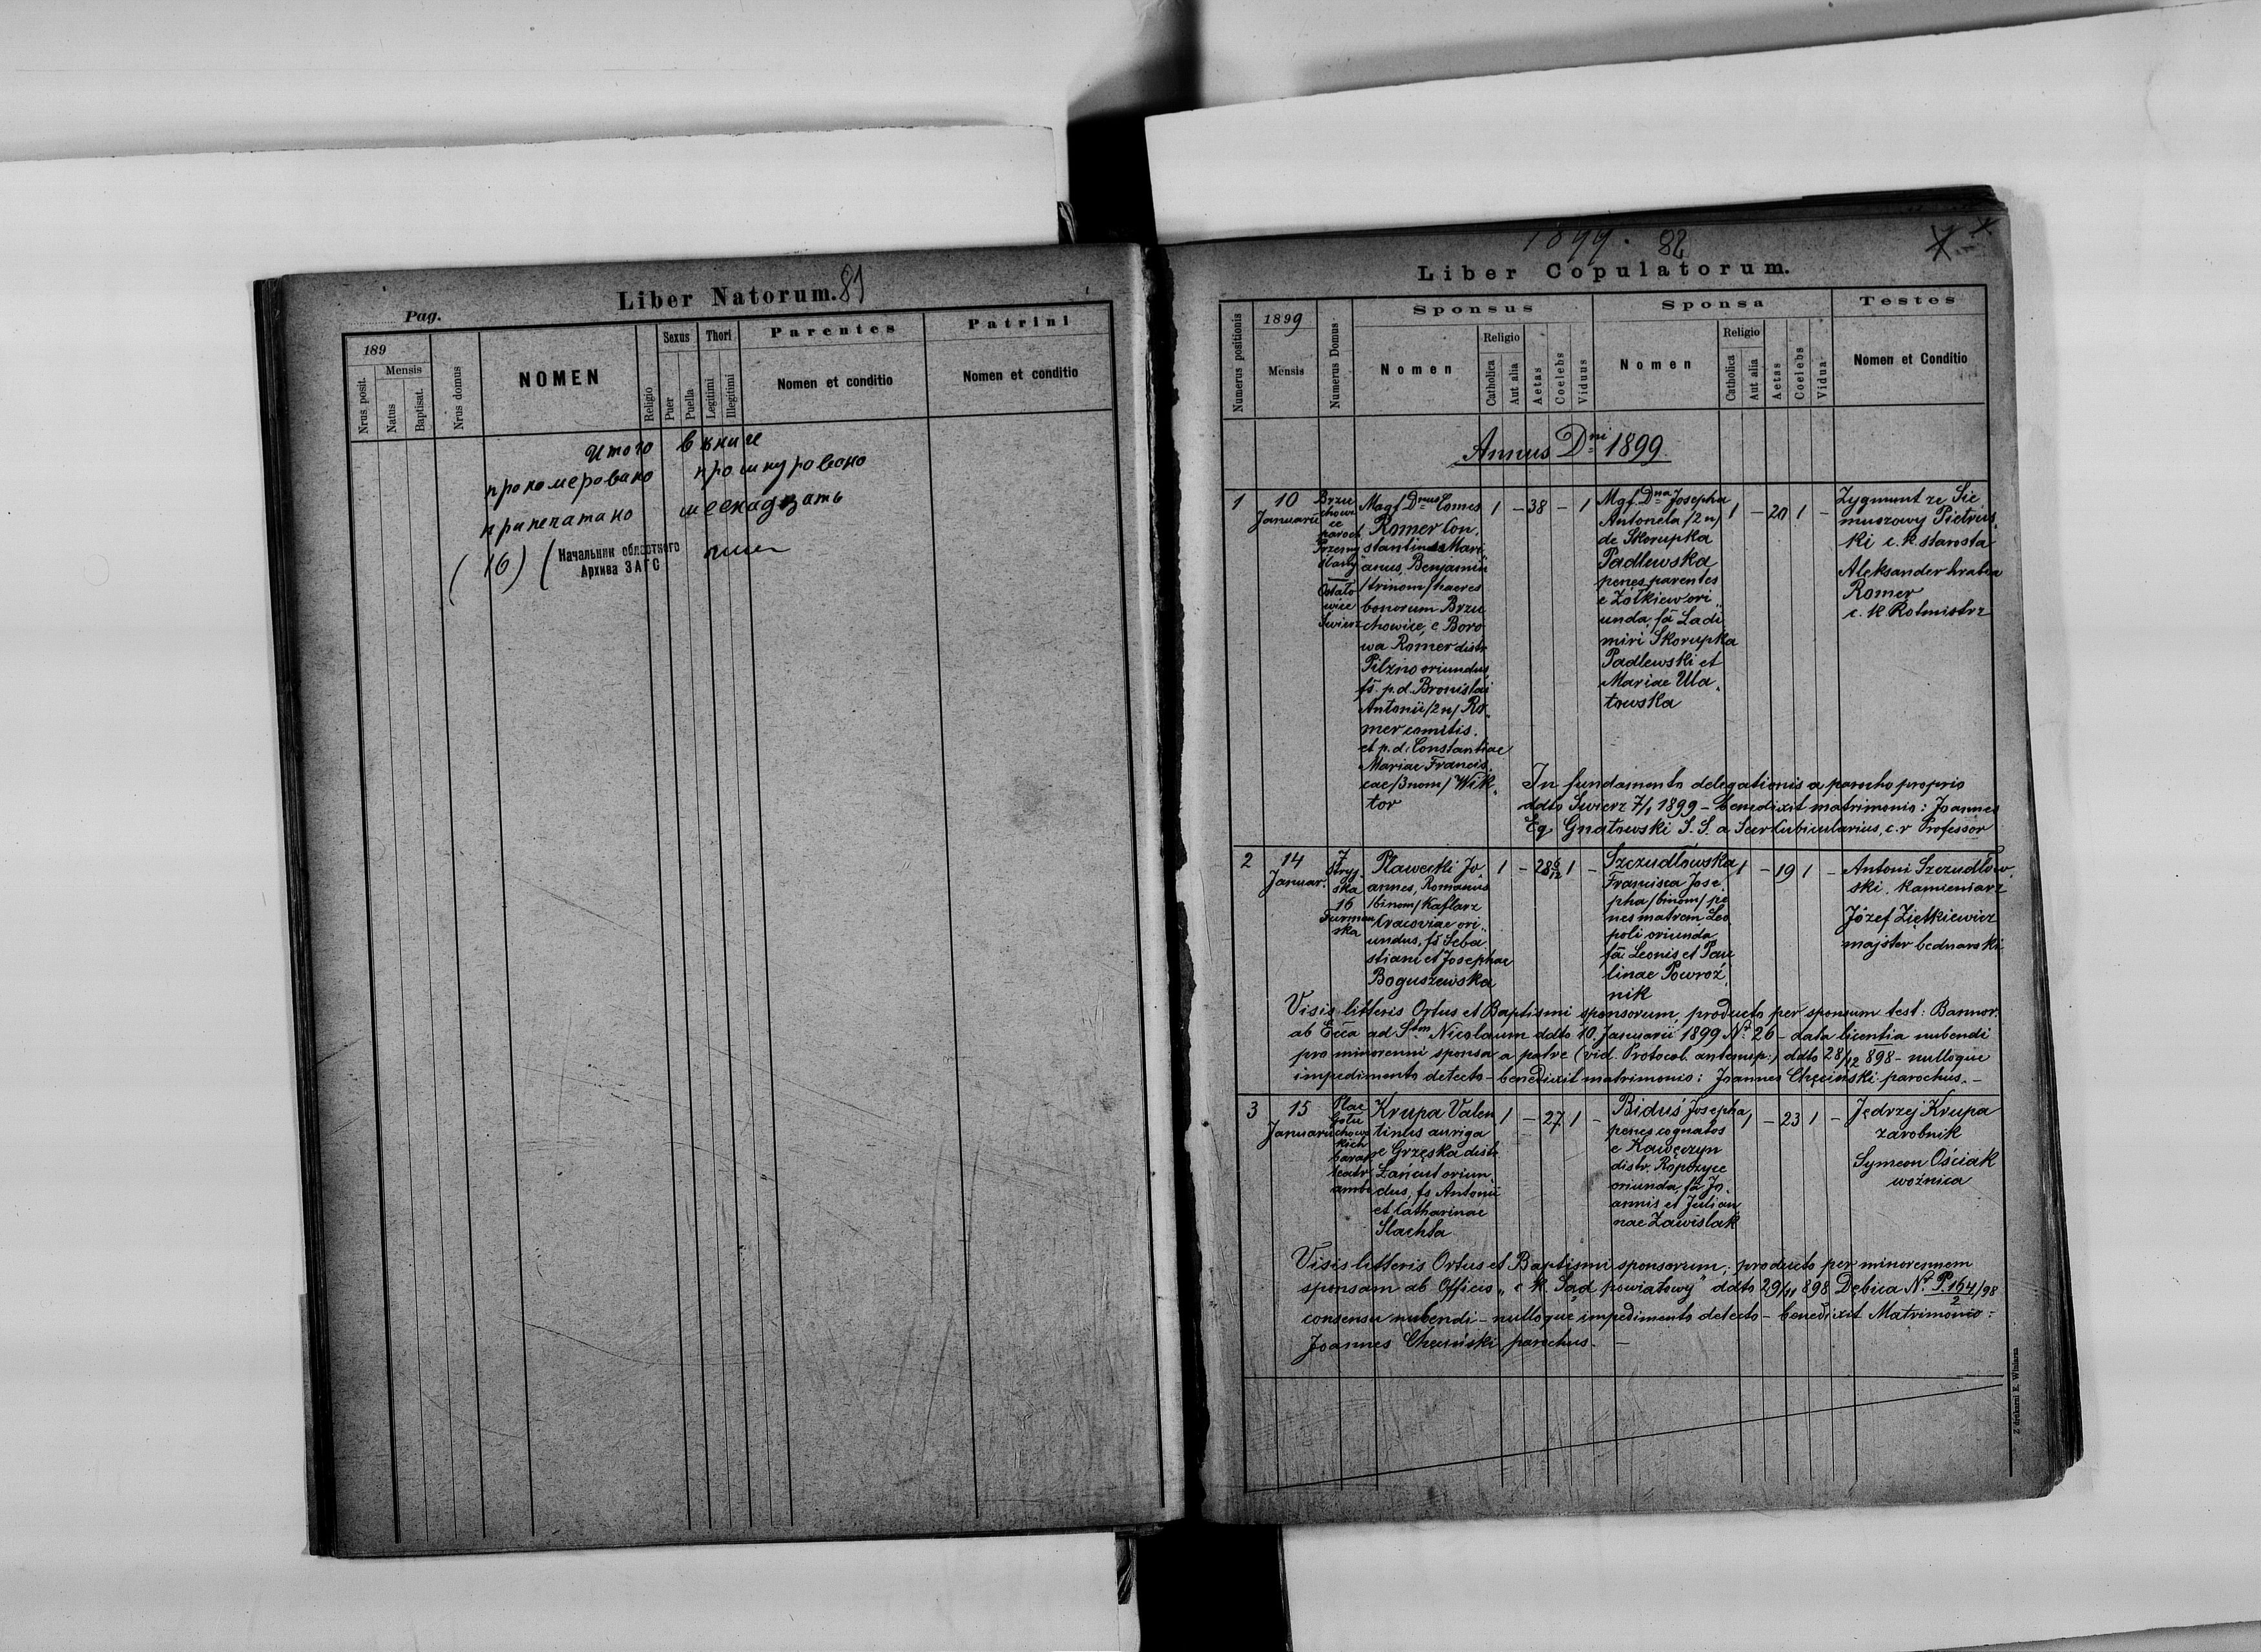 Liber Natorum. 81
Pag.
189
Mensis
Nrus. posit.
Natus
Baptisat.
Nrus domus
NOMEN
Religio
Sexus
Puer
Puella
Thori
Legitimi
Illegitimi
Parentes
Nomen et conditio
Patrini
Nomen et conditio
итого в книге
прономеровано прошнуровано
припечатано
(16) (
Начальник областного
Архива ЗАГС
1899. 82
Liber Copulatorum.
Numerus positionis
1899
Mensis
Numerus Domus
Sponsus
Nomen
Religio
Catholica
Aut alia
Aetas
Coelebs
Viduus
Sponsa
Nomen
Religio
Catholica
Aut alia
Aetas
Coelebs
Vidua
Testes
Nomen et Conditio
Annus Dni 1899.
1
10
Januarii
Brzu
chowi
ce
paroch
Przemy
ślany
Ostało
wice
Swierz
Magf. Dnus Comes
Romer Con,
stantinus Mari,
anus, Benjamin
/trinom/ haeres
bonorum Brzu
chowice, e Boro
wa Romer distr.
Pilzno oriundus,
fs. p.d. Bronislai
Antonii /2n/ Ro,
mer comitis.
et p.d. Constantiae
Mariae Francis,
cae /3nom/ Wik,
tor
1 – 38 – 1
Mgf. Dna Josepha
Antonela /2n/
de Skorupka
Padlewska
penes parentes
e Zółkiew ori,,
unda, fa Ladi
miri Skorupka
Padlewski et
Mariae Ula,
towska
1 – 20 1 –
Zygmunt ze Sie
muszowy Pietrus,
ki c. k. starosta
Aleksander hrabia
Romer
c. k. Rotmistrz
In fundamento delegationis a parocho proprio
ddto Swierz 7/1 1899 – benedixit matrimonio: Joannes
Eq. Gnatowski S. S. a Secr Cubicularius, c. r Professor
2
14
Januar.
7
Stryj
ska
16
Furman
ska
Pławecki Jo,
annes, Romanus
/binom/ Kaflarz
Cracoviae ori,,
undus, fs Seba
stiani et Josephae
Boguszewska
1 – 28 6/12 1 –
Szczudłowska
Francisca Jose,
pha /binom/ pe
nes matrem Leo
poli oriunda,
fa Leonis et Pau
linae Powroź,
nik
1 – 19 1 –
Antoni Szczudłow,
ski, kamieniarz
Józef Ziętkiewicz
majster bednarski
Visis litteris Ortus et Baptismi sponsorum, producto per sponsum test: Bannor.
ab Ecca ad Stm Nicolaum ddto 10. Januarii 1899 Nº 26 – data licentia nubendi
pro minorenni sponsa a patre (vid. Protocol. antenup:) ddto 28/12 898 – nulloque
impedimento detecto – benedixit matrimonio: Joannes Chęciński parochus. –
3
15
Januarii
Plac
Gołu
chows
kich
barak
teatr.
ambo
Krupa Valen
tinus auriga
e Grzęska distr.
Łańcut oriun,
dus, fs Antonii
et Catharinae
Slachta
1 – 27 1 –
Biduś Josepha
penes cognatos
e Kawęczyn
distr. Ropczyce
oriunda, fa Jo,
annis et Julian
nae Zawislak
1 – 23 1 –
Jędrzej Krupa
zarobnik
Symeon Ościak
woźnica
Visis litteris Ortus et Baptismi sponsorum; producto per minorennem
sponsam ab Officio „c k. Sąd powiatowy" ddto 29/11 898 Dębica Nº P. 164/98
2
consensu nubendi – nulloque impedimento detecto – benedixit Matrimonio:
Joannes Chęciński, parochus. –
Z drukarni E. Winiarza